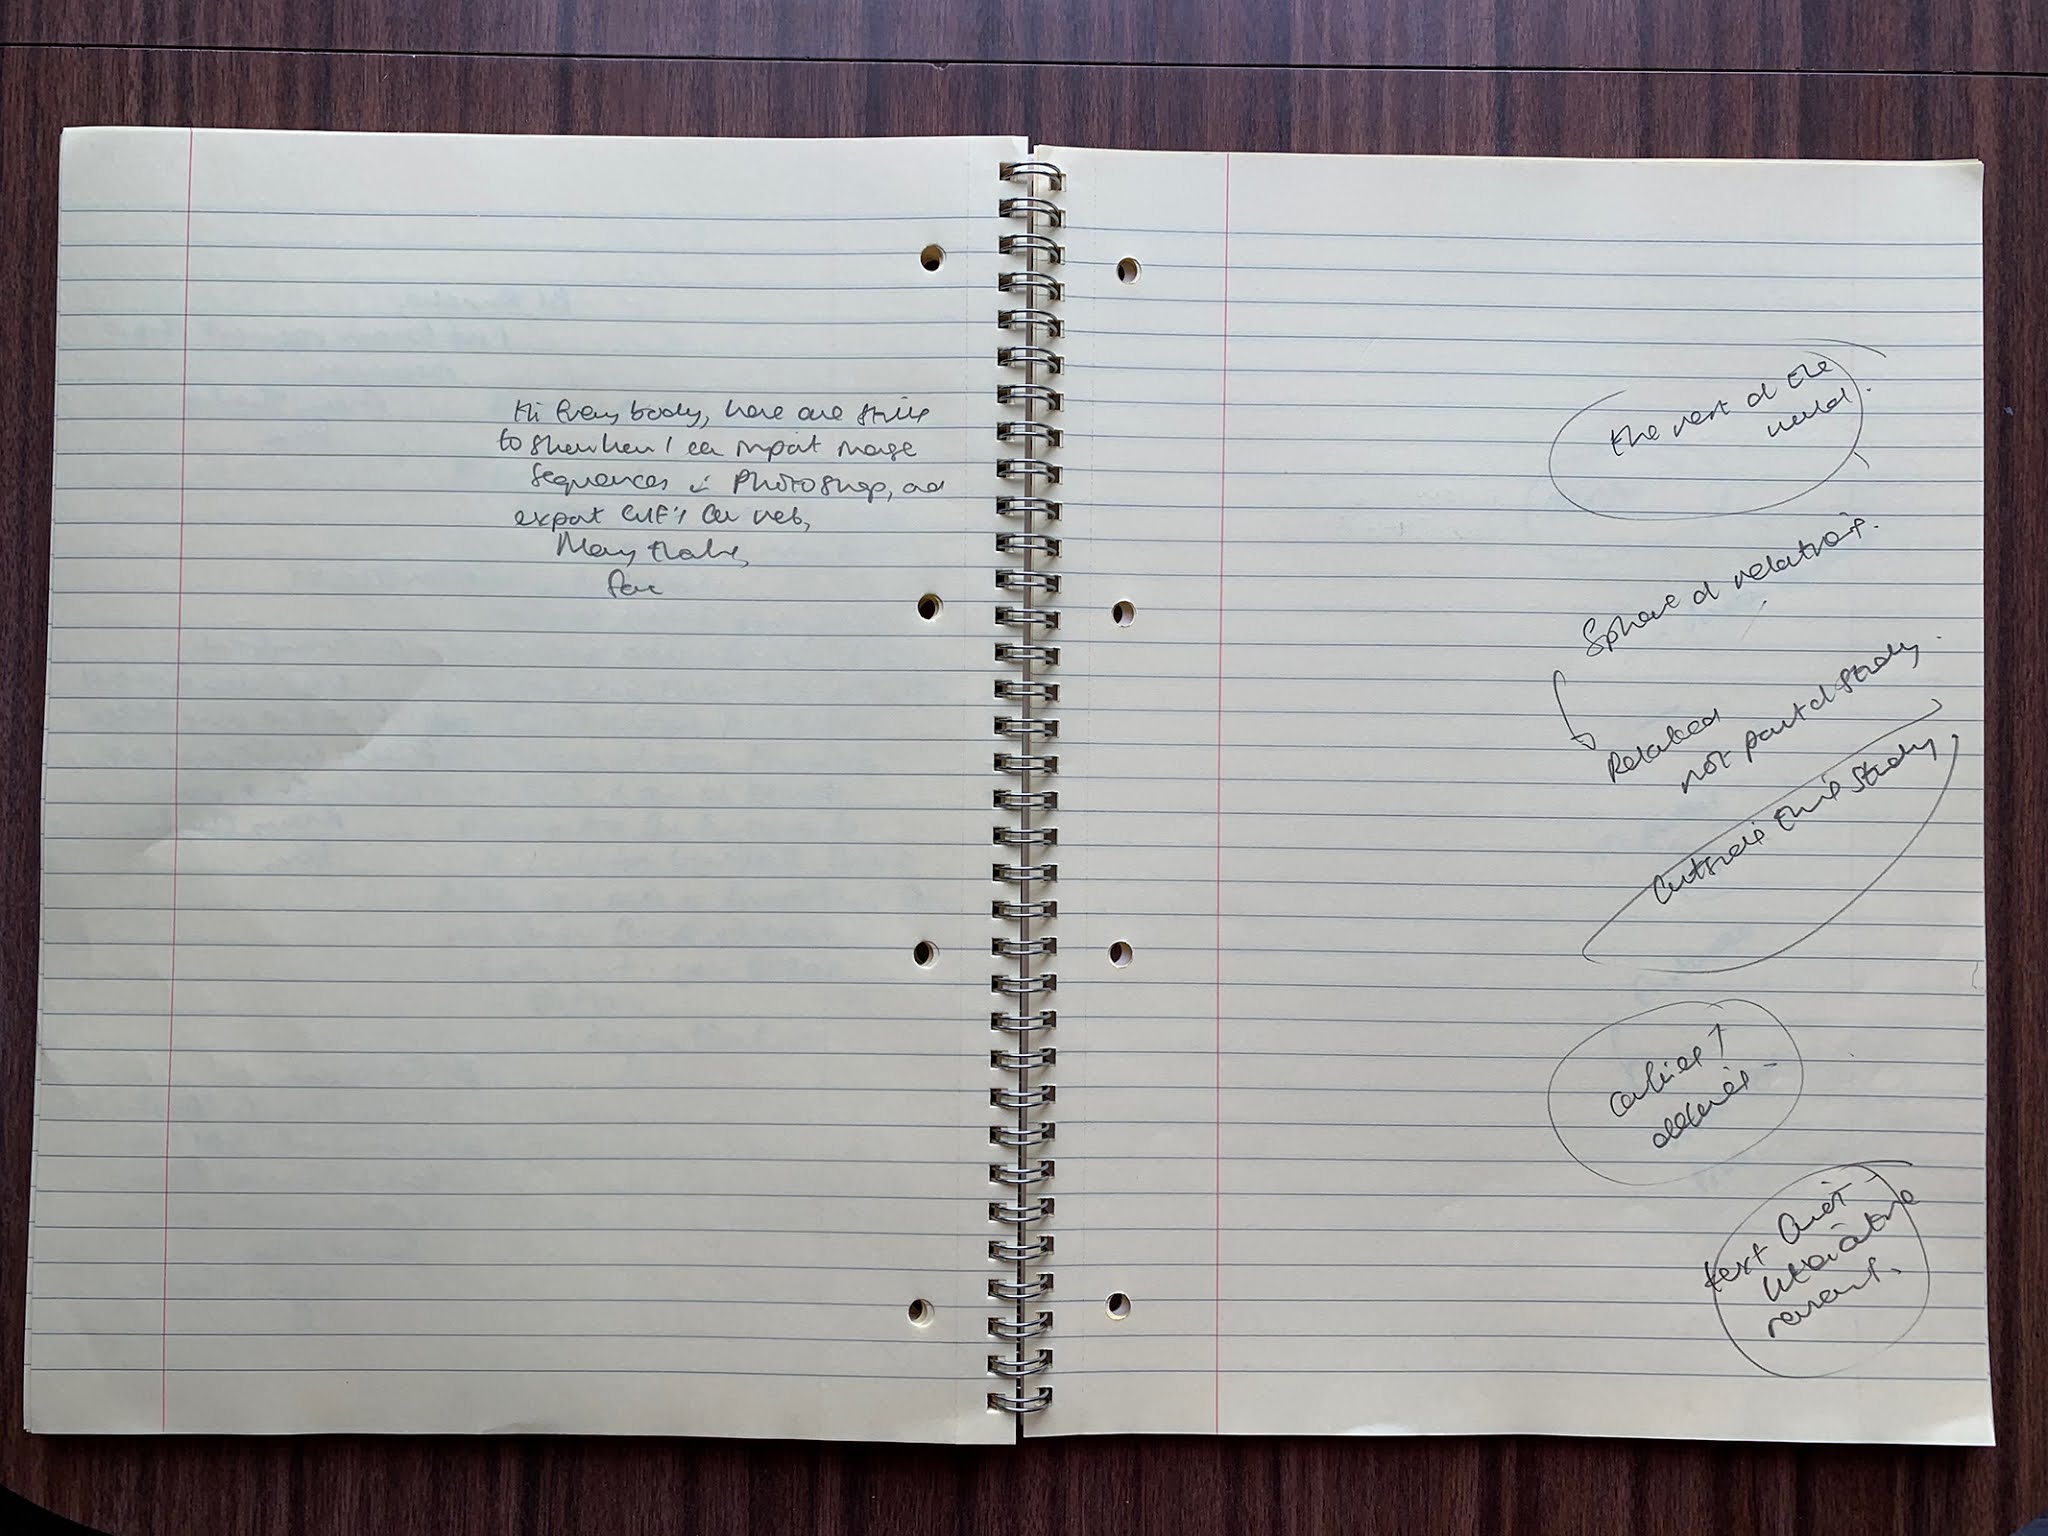 Hi Everybody, here are stills
to show how I can import image
sequences in Photoshop, and
export GIF's for web,
Many thanks,
the rest of the
world.
Sphere of relations.
Related
not part of study.
Outside this study
earlier ↑
text
literature